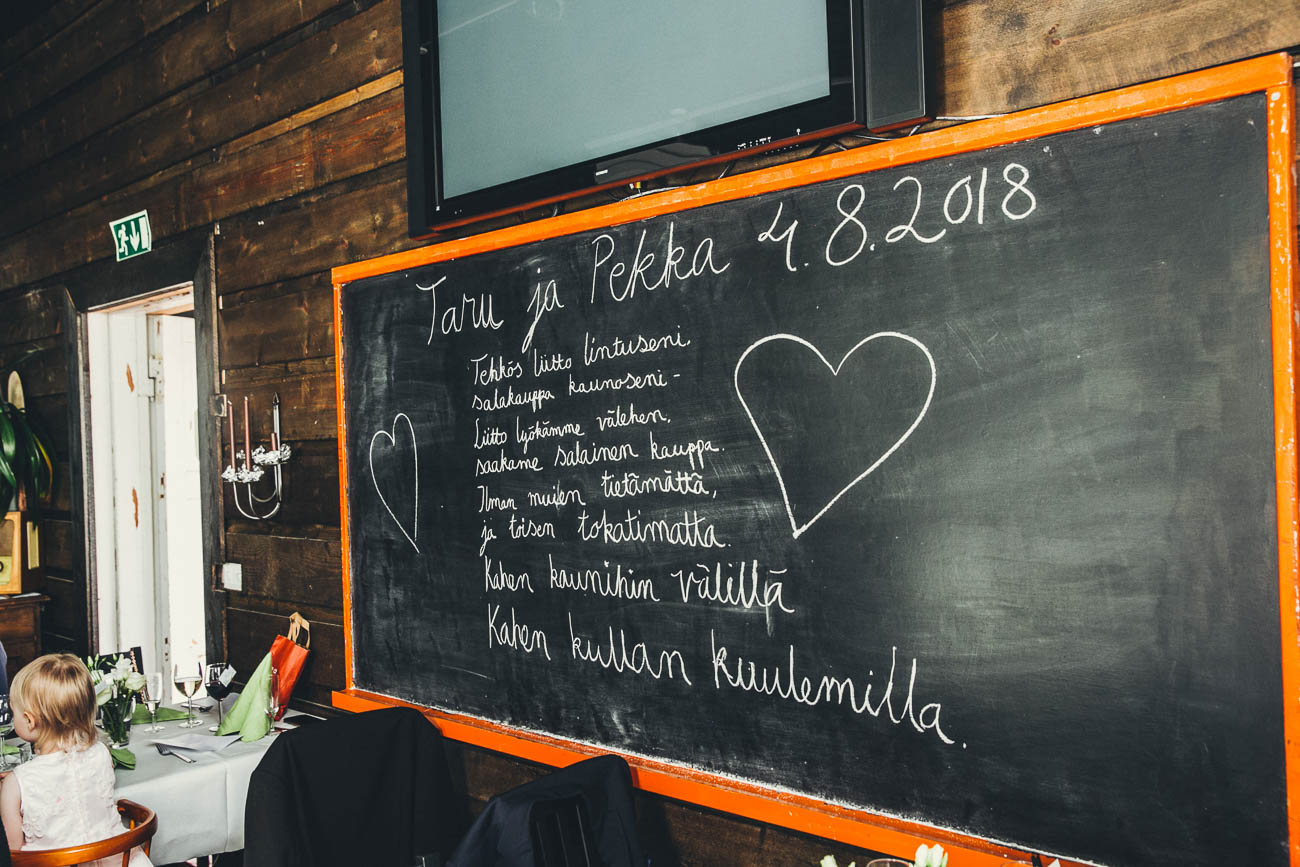 Taru ja Pekka 4.8.2018
Tehkös liitto lintuseni,
salakauppa kaunoseni -
Liitto lyökämme välehen,
saakame salainen kauppa.
Ilman muiden tietämättä,
ja toisen tokatimatta.
Kahen kaunihin välillä
Kahen kullan kuulemilla.